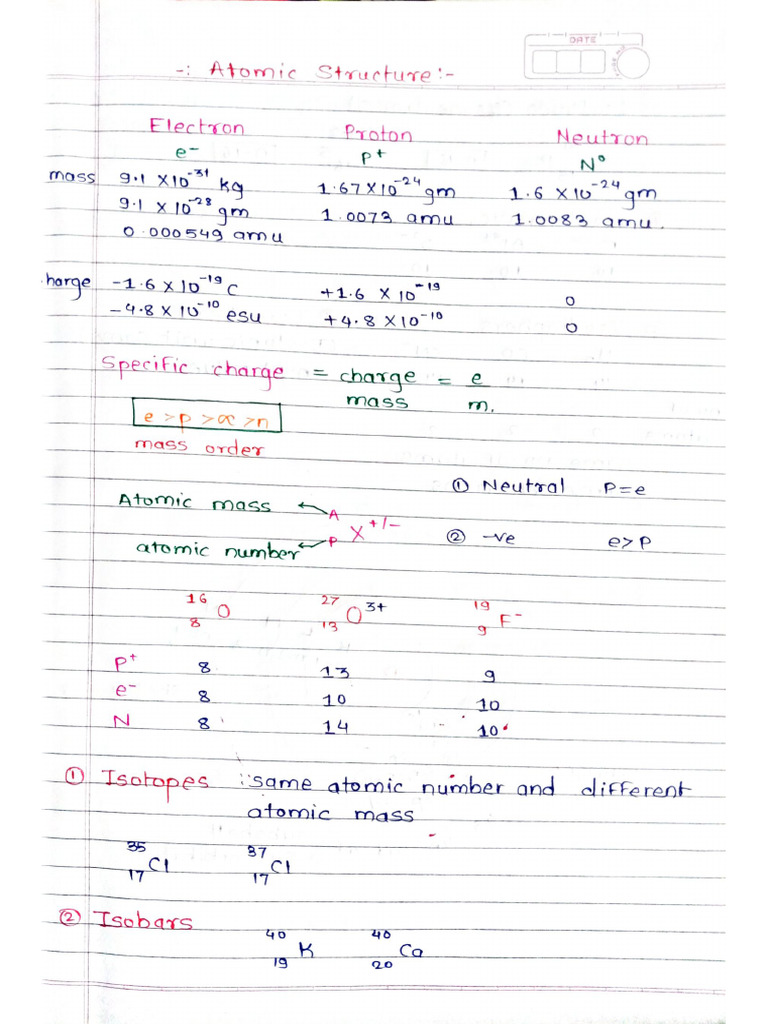 DATE
-: Atomic Structure:-
Electron Proton Neutron
e⁻ P⁺ N°
mass 9.1 X10⁻³¹ kg 1.67X10⁻²⁴gm 1.6 X10⁻²⁴gm
9.1 X 10⁻²⁸ gm 1.0073 amu 1.0083 amu.
0.000549 amu
harge -1.6X10⁻¹⁹ C +1.6 X 10⁻¹⁹ 0
-4.8X10⁻¹⁰ esu +4.8X10⁻¹⁰ 0
Specific charge = charge = e
mass m.
e >p >α >n
mass order
① Neutral P=e
Atomic mass A
X⁺/⁻ ② -ve e>P
atomic number P
¹⁶₈O ²⁷₁₃O³⁺ ¹⁹₉F⁻
P⁺ 8 13 9
e⁻ 8 10 10
N 8 14 10
① Isotopes : same atomic number and different
atomic mass
³⁵₁₇Cl ³⁷₁₇Cl
② Isobars
⁴⁰₁₉K ⁴⁰₂₀Ca